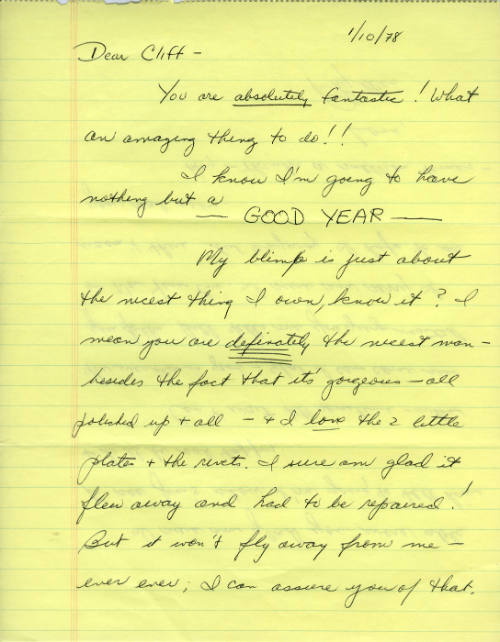 1/10/78
Dear Cliff -
You are absolutely fantastic! What
an amazing thing to do!!
I know I'm going to have
nothing but a
— GOOD YEAR —
My blimp is just about
the nicest thing I own, know it? I
mean you are definately the nicest man -
besides the fact that it's gorgeous - all
polished up + all - + I love the 2 little
plates + the rivets. I sure am glad it
flew away and had to be repaired!
But it won't fly away from me -
ever ever; I can assure you of that.